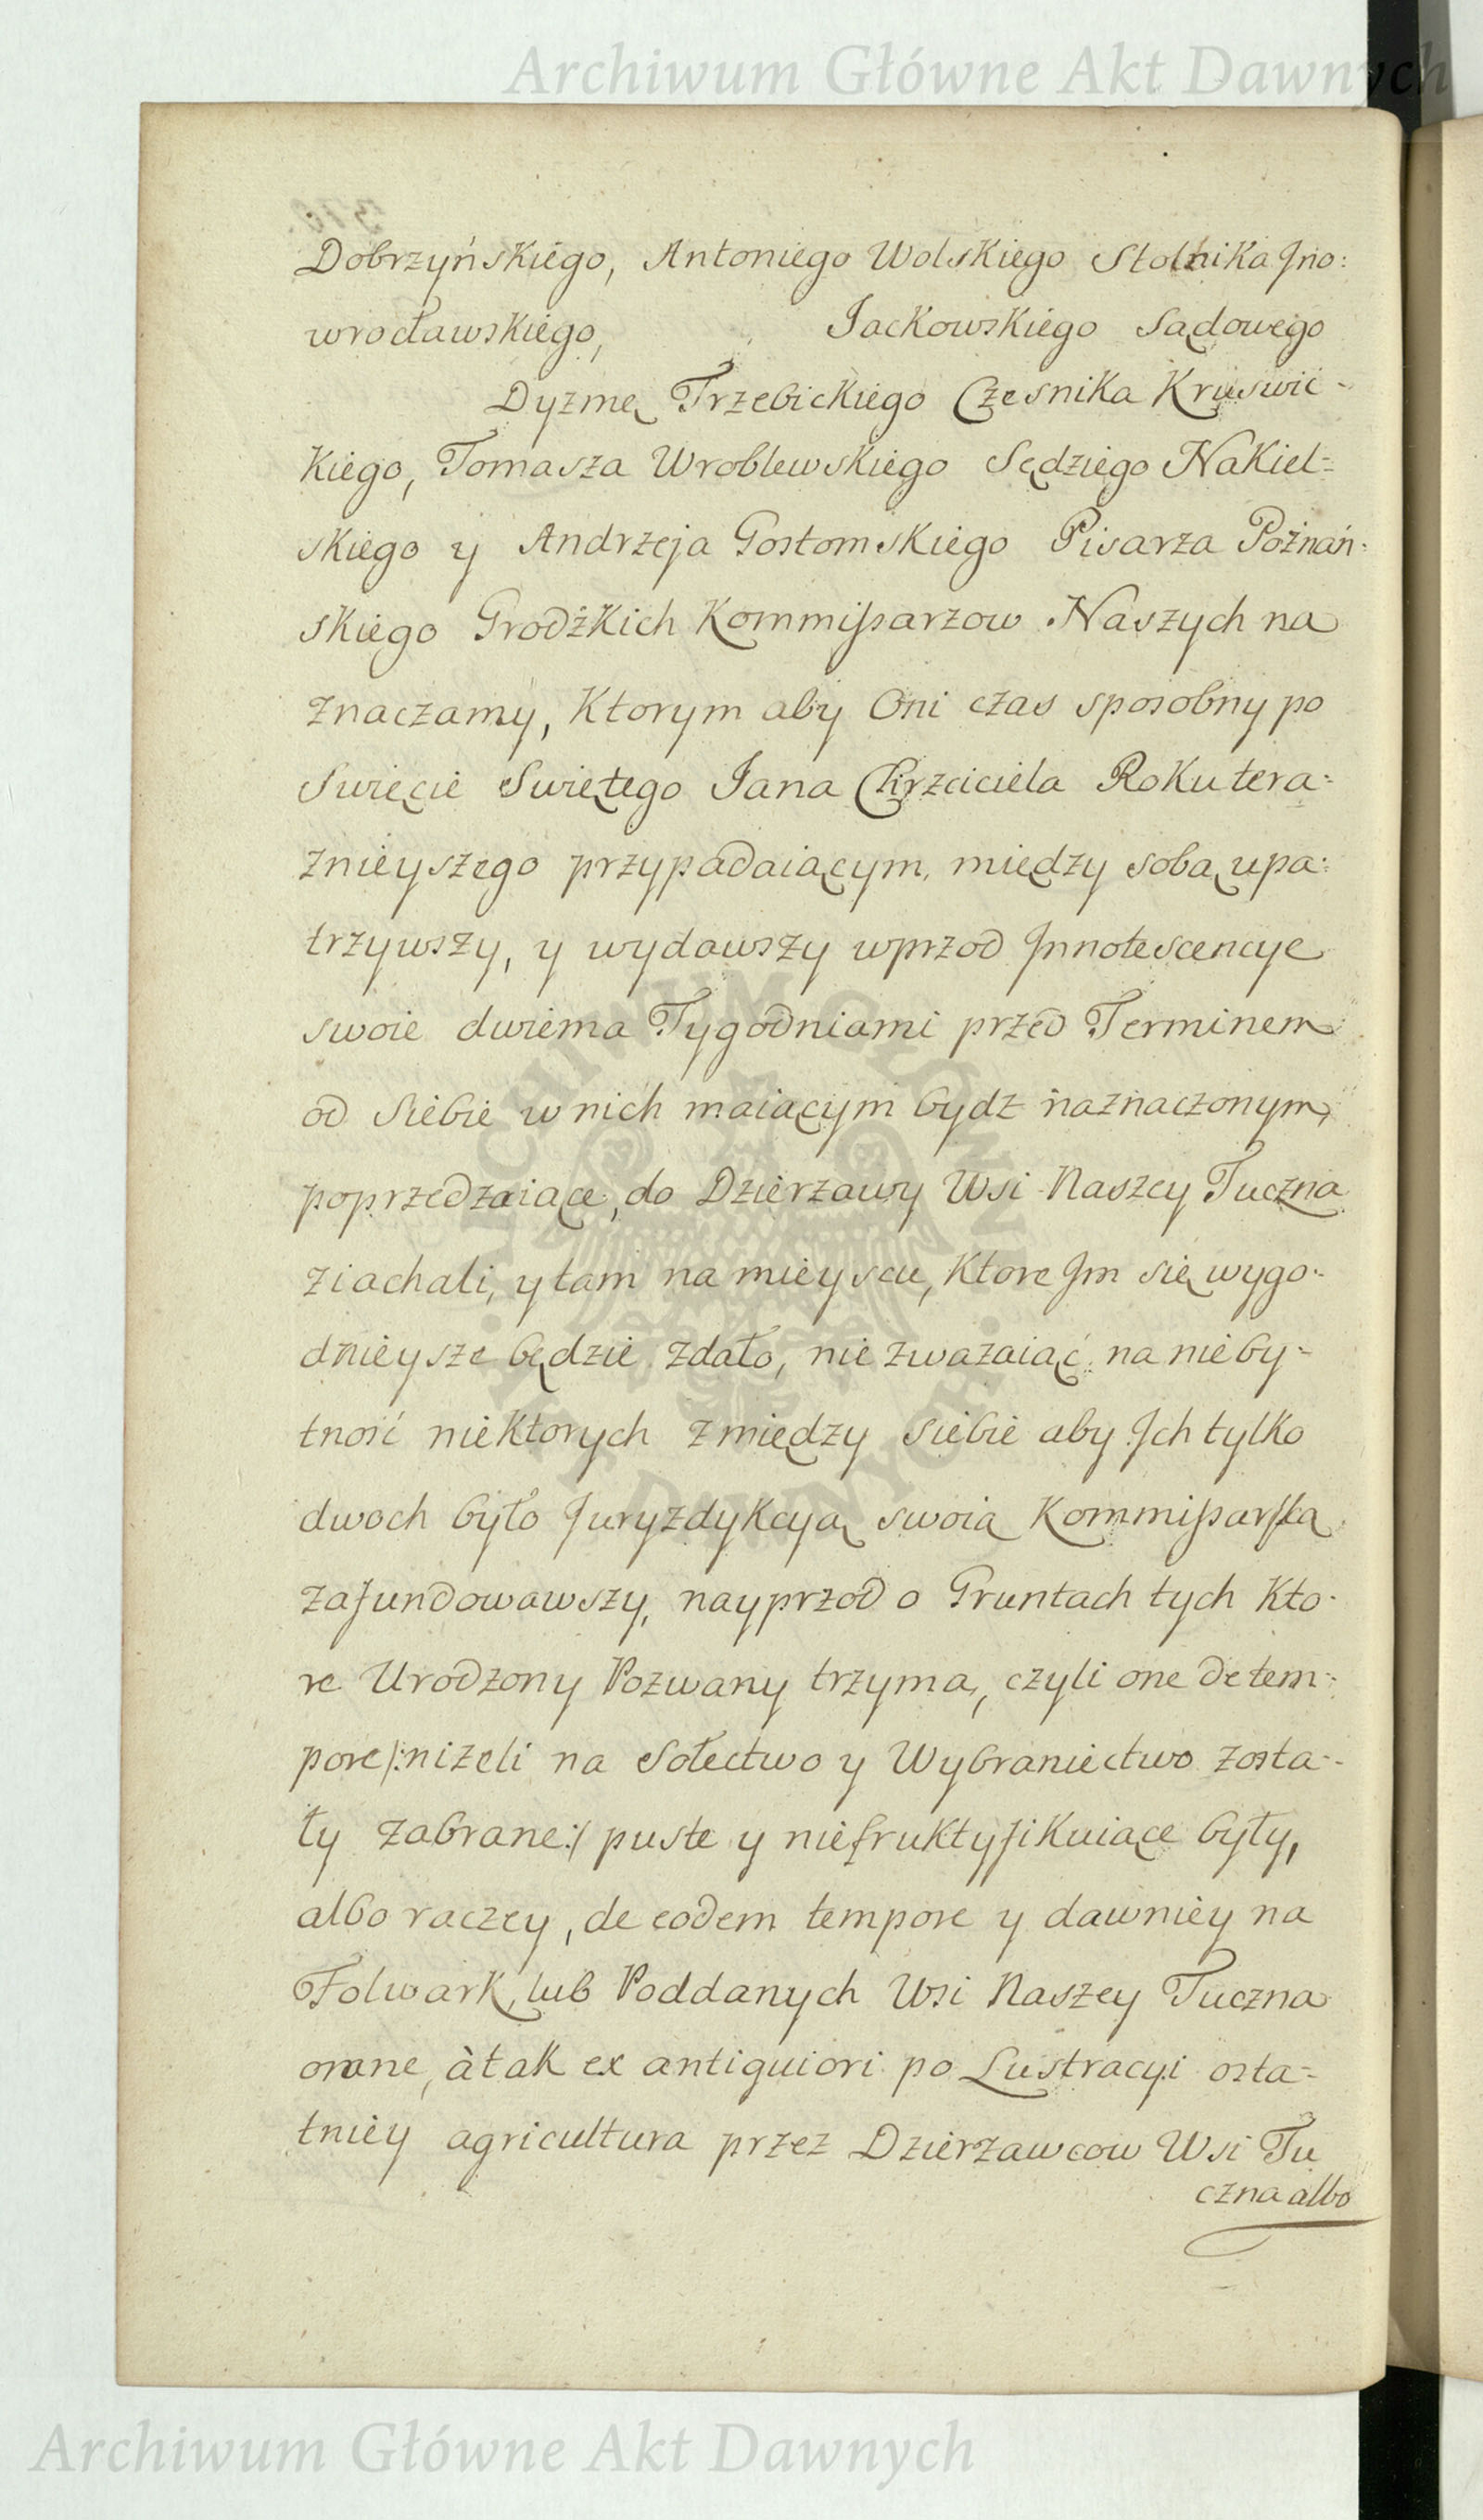 Archiwum Główne Akt Dawnych
Dobrzyńskiego, Antoniego Wolskiego Stolnika Jno:
wrocławskiego, Jackowskiego Sądowego
Dyzmę Trzebickiego Czesnika Kruswic-
kiego, Tomasza Wroblewskiego Sędziego Nakiel=
skiego y Andrzeja Gostomskiego Pisarza Poznań:
skiego Grodzkich Kommissarzow Naszych na
znaczamy, Ktorym aby Oni czas sposobny po
Swięcie Swiętego Jana Chrzciciela Roku tera=
znieyszego przypadaiącym, między sobą upa:
trzywszy, y wydawszy wprzod Jnnotescencye
swoie dwiema Tygodniami przed Terminem
od siebie w nich maiącym bydz naznaczonym,
poprzedzaiące, do Dzierzawy Wsi Naszey Tuczna
ziachali, y tam na mieyscu, ktore Jm się wygo-
dnieysze będzie zdało, nie zwazaiąć na nieby-
tność niektorych z między siebie aby Jch tylko
dwoch było Juryzdykcyą swoią Kommissarską
zafundowawszy, nayprzod o Gruntach tych kto-
re Urodzony Pozwany trzyma, czyli one de tem-
pore /:nizeli na Sołectwo y Wybraniectwo zosta-
ły zabrane:/ puste y niefruktyfikuiące były,
albo raczey, de eodem tempore y dawniey na
Folwark, lub Poddanych Wsi Naszey Tuczna
orane, à tak ex antiquiori po Lustracyi osta=
tniey agricultura przez Dzierzawcow Wsi Tu
czna albo
ARCHIWUM GŁÓWNE AKT DAWNYCH
Archiwum Główne Akt Dawnych